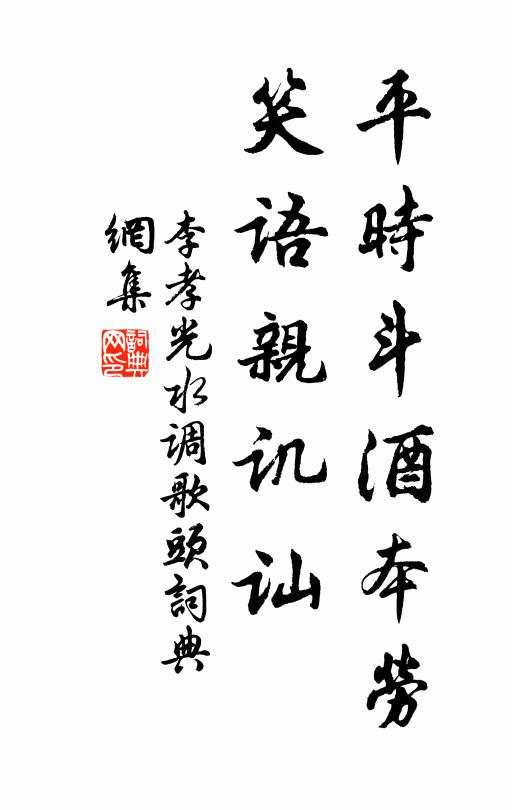 平時斗酒本勞
笑語親讥讪
李孝光水调歌頭詞典
網集
詞典網印